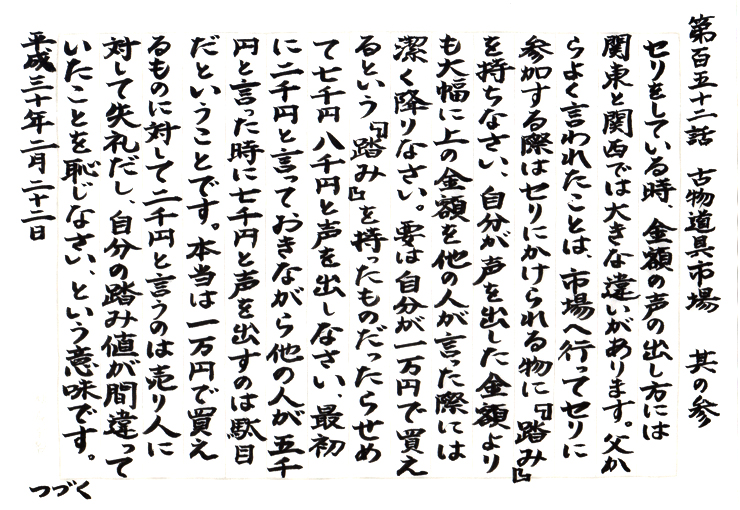 第百五十二話　古物道具市場　其の参
セリをしている時　金額の声の出し方には
関東と関西では大きな違いがあります。父か
らよく言われたことは、市場へ行ってセリに
参加する際はセリにかけられる物に『踏み』
を持ちなさい、自分が声を出した金額より
も大幅に上の金額を他の人が言った際には
潔く降りなさい。要は自分が一万円で買え
るという『踏み』を持ったものだったらせめ
て七千円　八千円と声を出しなさい、最初
に二千円と言っておきながら他の人が五千
円と言った時に七千円と声を出すのは駄目
だということです。本当は一万円で買え
るものに対して二千円と言うのは売り人に
対して失礼だし、自分の踏み値が間違って
いたことを恥じなさい、という意味です。
平成三十年二月二十二日
つづく